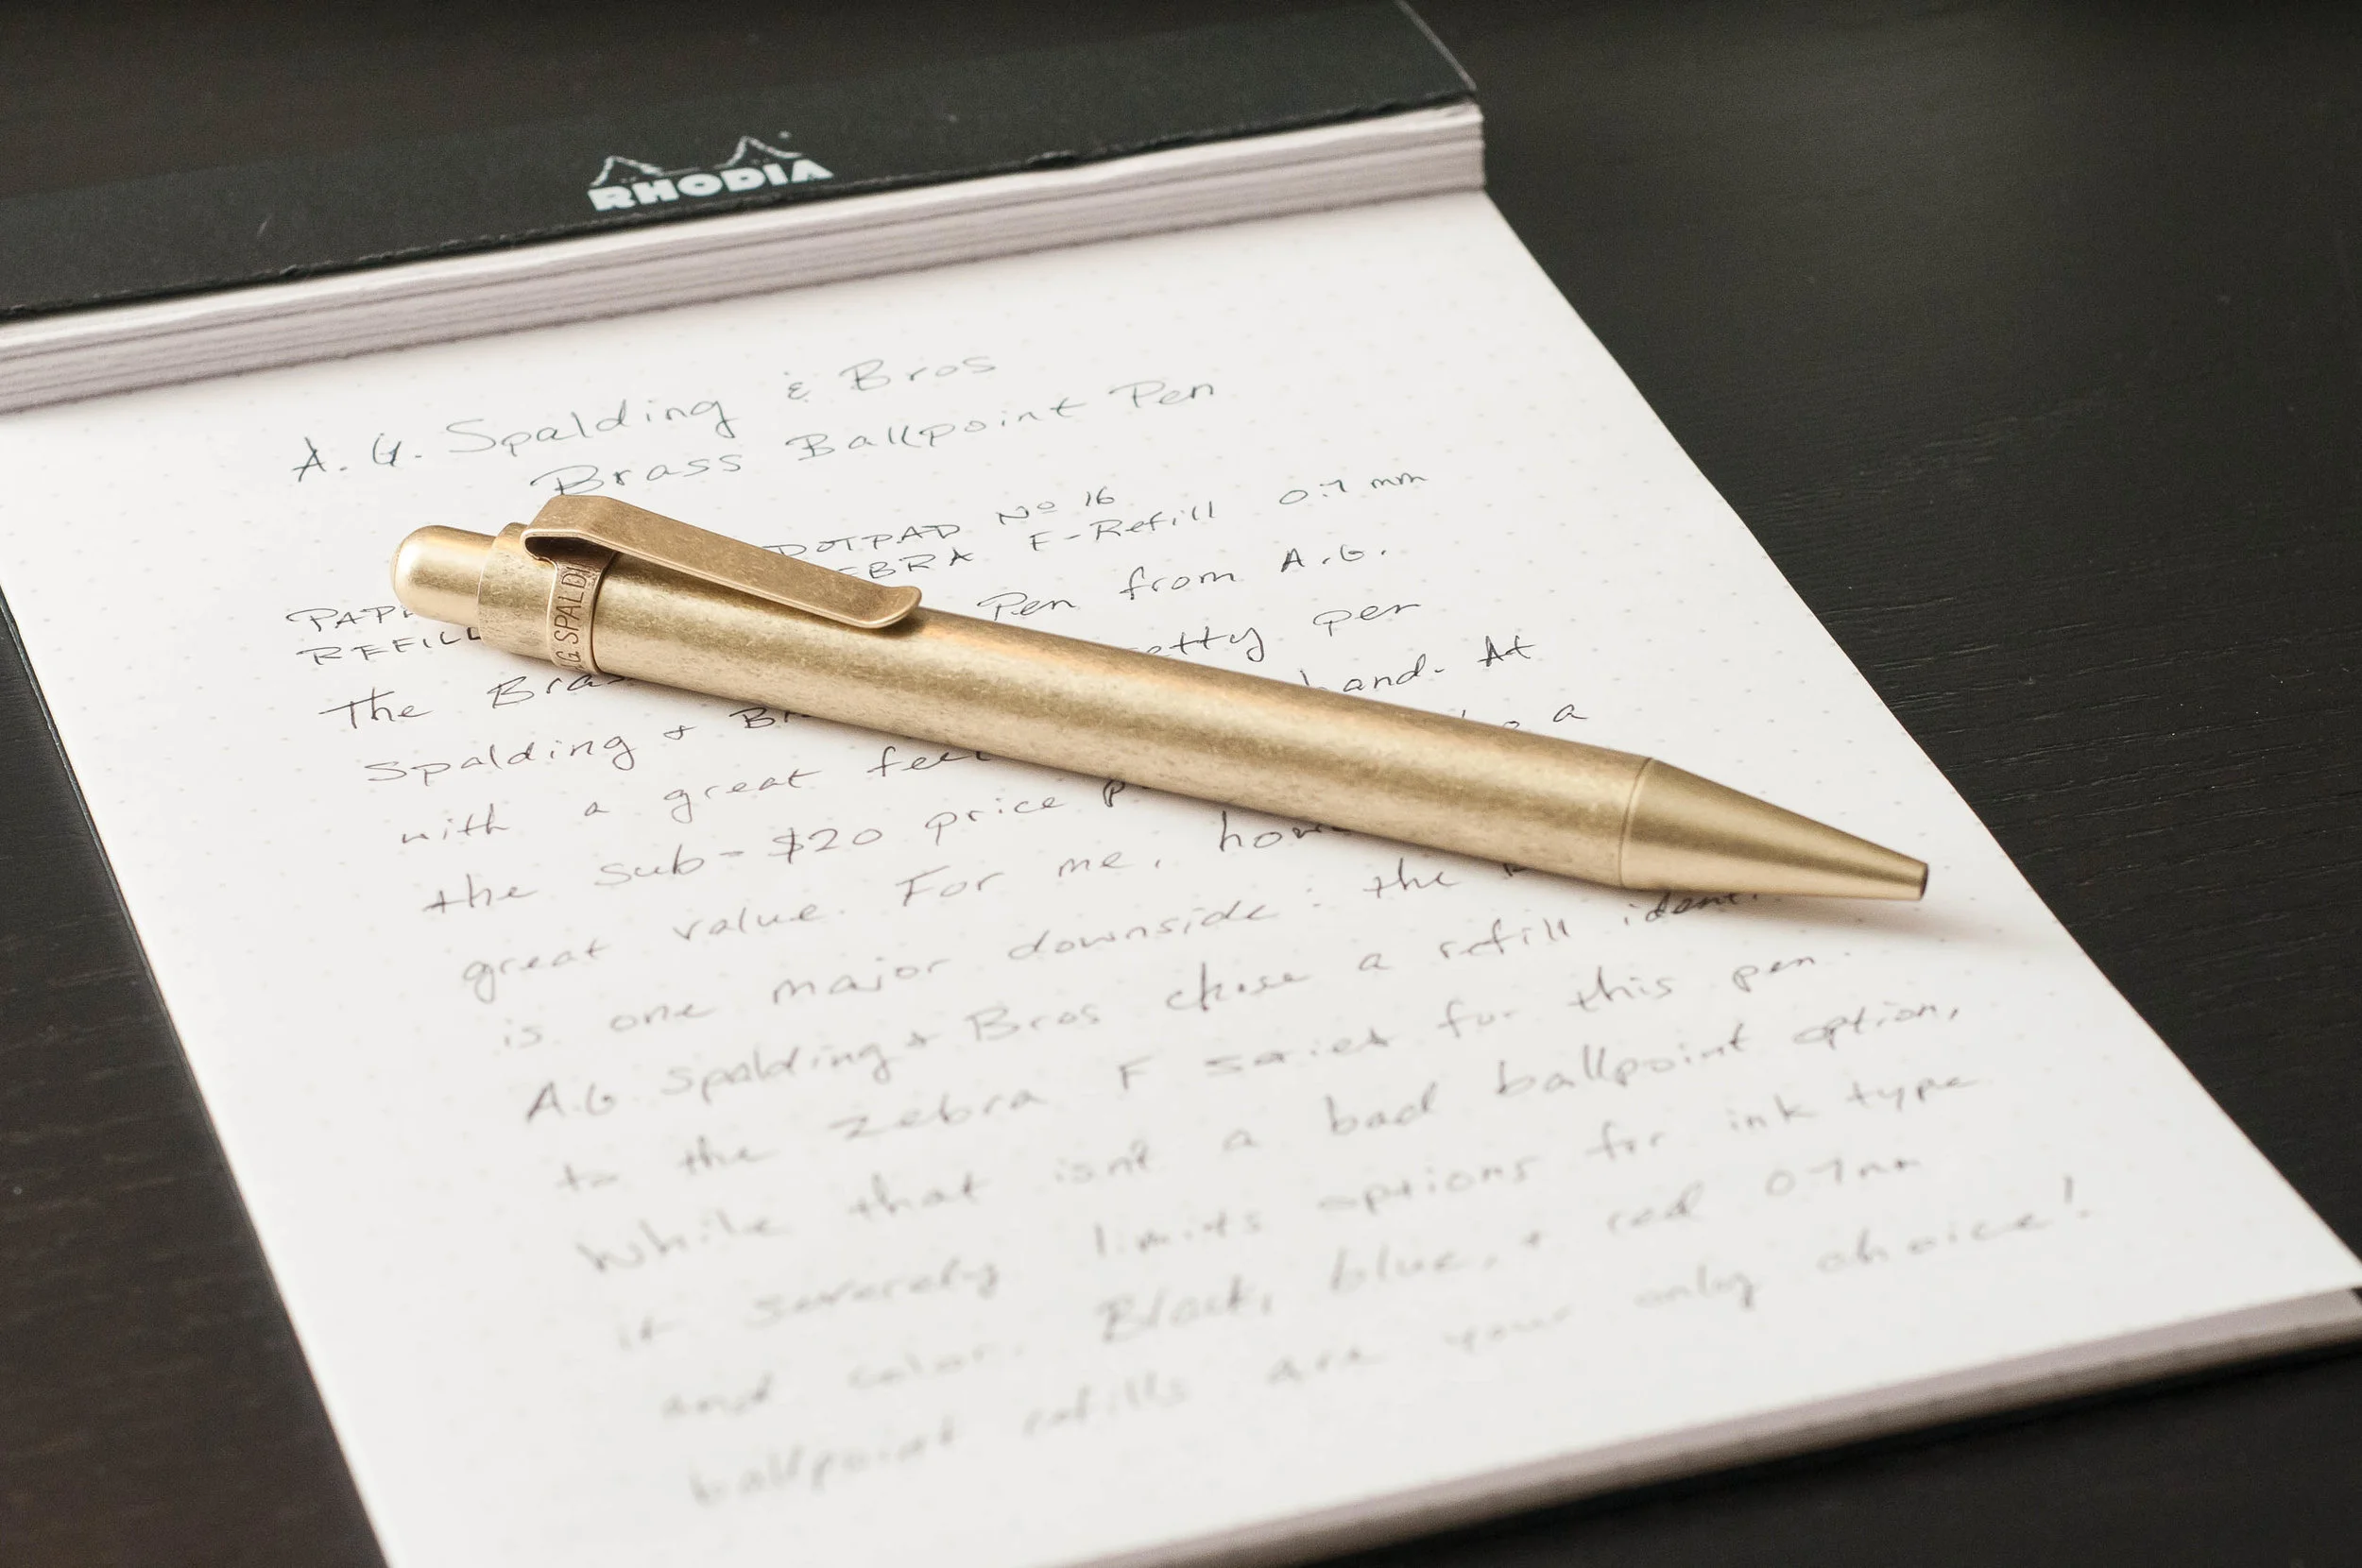 RHODIA
A. G. Spalding & Bros
Brass Ballpoint Pen
DOTPAD No 16
REFILL EBRA F-Refill 0.7 mm
The Bra Pen from A.G.
Spalding + Br etty pen
with a great feel hand. At
the sub-$20 price p a
great value. For me, how
is one major downside: the
A.G Spalding + Bros chose a refill ident
to the zebra F series for this pen.
While that isn't a bad ballpoint option,
it severely limits options for ink type
and color. Black, blue, + red 0.7mm
ballpoint refills are your only choice!
G. SPALDI